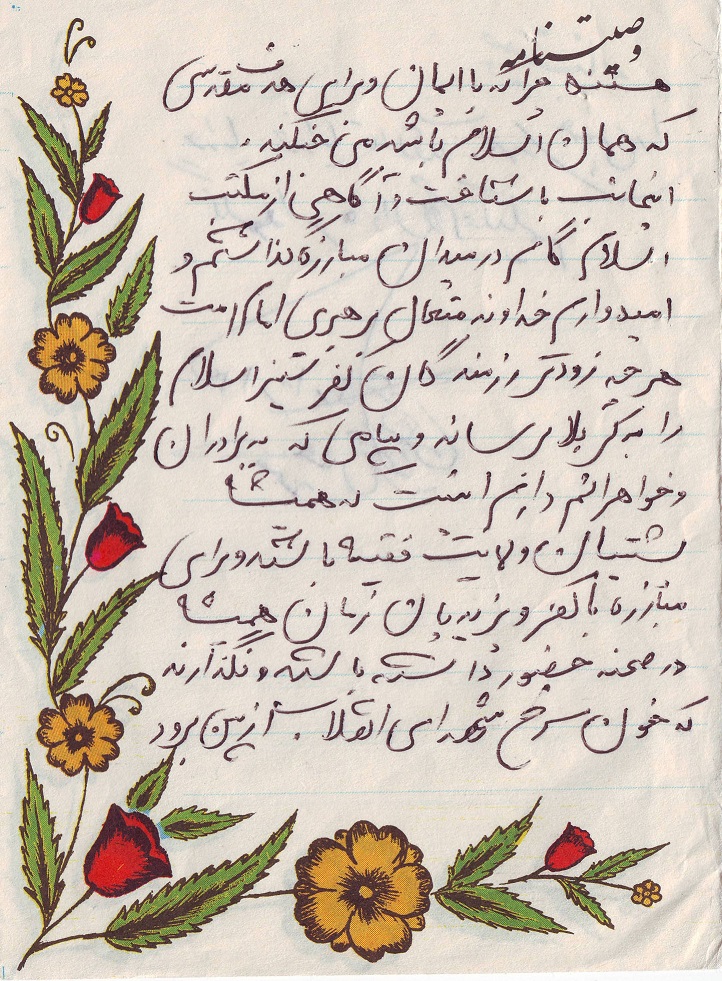 وصیتنامه
هستند چرا که با ایمان و برای هدف مقدسی
که همان اسلام باشد می جنگند.
اینجانب با شناخت و آگاهی از مکتب
اسلام گام در میدان مبارزه گذاشتم و
امیدوارم خداوند متعال برهبری امام امت
هر چه زودتر رزمندگان کفر ستیز اسلام
را به کربلا برساند و پیامی که به برادران
و خواهرانم دارم اینست که همیشه
پشتیبان ولایت فقیه باشند و برای
مبارزه با کفر و یزیدیان زمان همیشه
در صحنه حضور داشته باشند و نگذارند
که خون سرخ شهدای انقلاب از بین برود